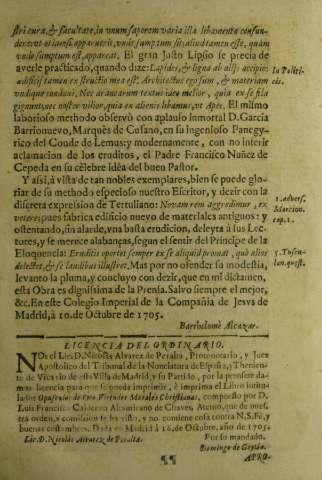 stri cura, & facultate, in unum saporem varia illa libamenta confun-
derevut etiamsi apparuerit, unde sumptum sit; aliud tamen esse, quàm
unde sumptum est, appareat. El gran Justo Lipsio se precia de
averle practicado, quando dize: Lapides, & ligna ab alijs accipio:
ædificij tamen ex structio mea est. Architectus ego sum, & materiam
vndique conduxi. Nec aranearum textus ideo melior, quia ex se fila
gignunt, nec noster vilior, quia ex alienis libamus, vt Apes. El mismo
laborioso methodo observò con aplauso inmortal D. Garcia
Barrionuevo, Marquès de Cusano, en su ingenioso Panegy-
rico del Conde de Lemus; y modernamente, con no interir
aclamacion de los eruditos, el Padre Francisco Nuñez de
Cepeda en su cèlebre idèa del buen Pastor.
In Politi-
cis.
Y assi, à vista de tan nobles exemplares, bien se puede glo-
riar de su methodo especioso nuestro Escritor, y dezir con la
discreta expression de Tertuliano: Novam rem aggredimur, ex
vetere; pues fabrica edificio nuevo de materiales antiguos: y
ostentando, sin alarde, vna basta erudicion, deleyta à los Lec-
tores, y se merece alabanças, segun el sentir del Principe de la
Eloquencia: Eruditi oportet semper ex se aliquid promat, quò alios
delectet, & se laudibus illustret. Mas por no ofender su modestia,
levanto la pluma, y concluyo con dezir, que en mi dictamen,
esta Obra es dignissima de la Prensa. Salvo siempre el mejor,
&c. En este Colegio Imperial de la Compañia de Jesvs de
Madrid, à 10. de Octubre de 1705.
1. advers.
Marcion.
cap. 1.
5. Tuscu-
lan. quæst.
Bartholomè Alcazar.
LICENCIA DEL ORDINARIO.
NOs el Lic. D. Nicolàs Alvarez de Peralta, Protonotario, y Juez
Apostolico del Tribunal de la Nunciatura de España, y Thenien-
te de Vicario de esta Villa de Madrid, y su Partido, por la presente da-
mos licencia para que se pueda imprimir, è imprima el Libro intitu-
lado: Opusculos de Oro, Virtudes Morales Christianas, compuesto por D.
Luis Francisco Calderon Altamirano de Chaves. Atento, que de nues-
tra orden, y comission se ha visto, y no contiene cosa contra N. S. Fè, y
buenas costumbres. Dada en Madrid à 16. de Octubre, año de 1705.
Lic. D. Nicolàs Alvarez de Peralta.
Por su mandado.
Domingo de Goytia.
¶¶
APRO-